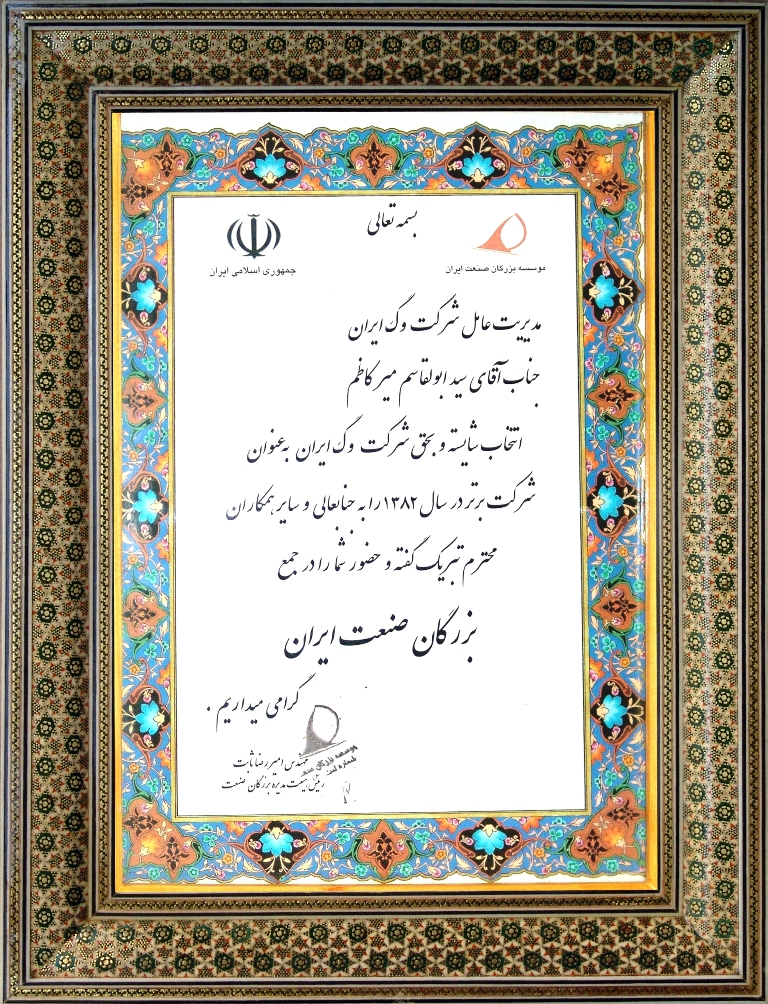 بسمه تعالی
موسسه بزرگان صنعت ایران
جمهوری اسلامی ایران
مدیریت عامل شرکت وگ ایران
جناب آقای سید ابولقاسم میر کاظم
انتخاب شایسته و بحق شرکت وگ ایران به عنوان
شرکت برتر در سال ۱۳۸۲ را به جنابعالی و سایر همکاران
محترم تبریک گفته و حضور شما را در جمع
بزرگان صنعت ایران
گرامی میداریم .
مهندس امیررضا ثابت
رئیس هیئت مدیره بزرگان صنعت
موسسه بزرگان صنعت
شماره ثبت